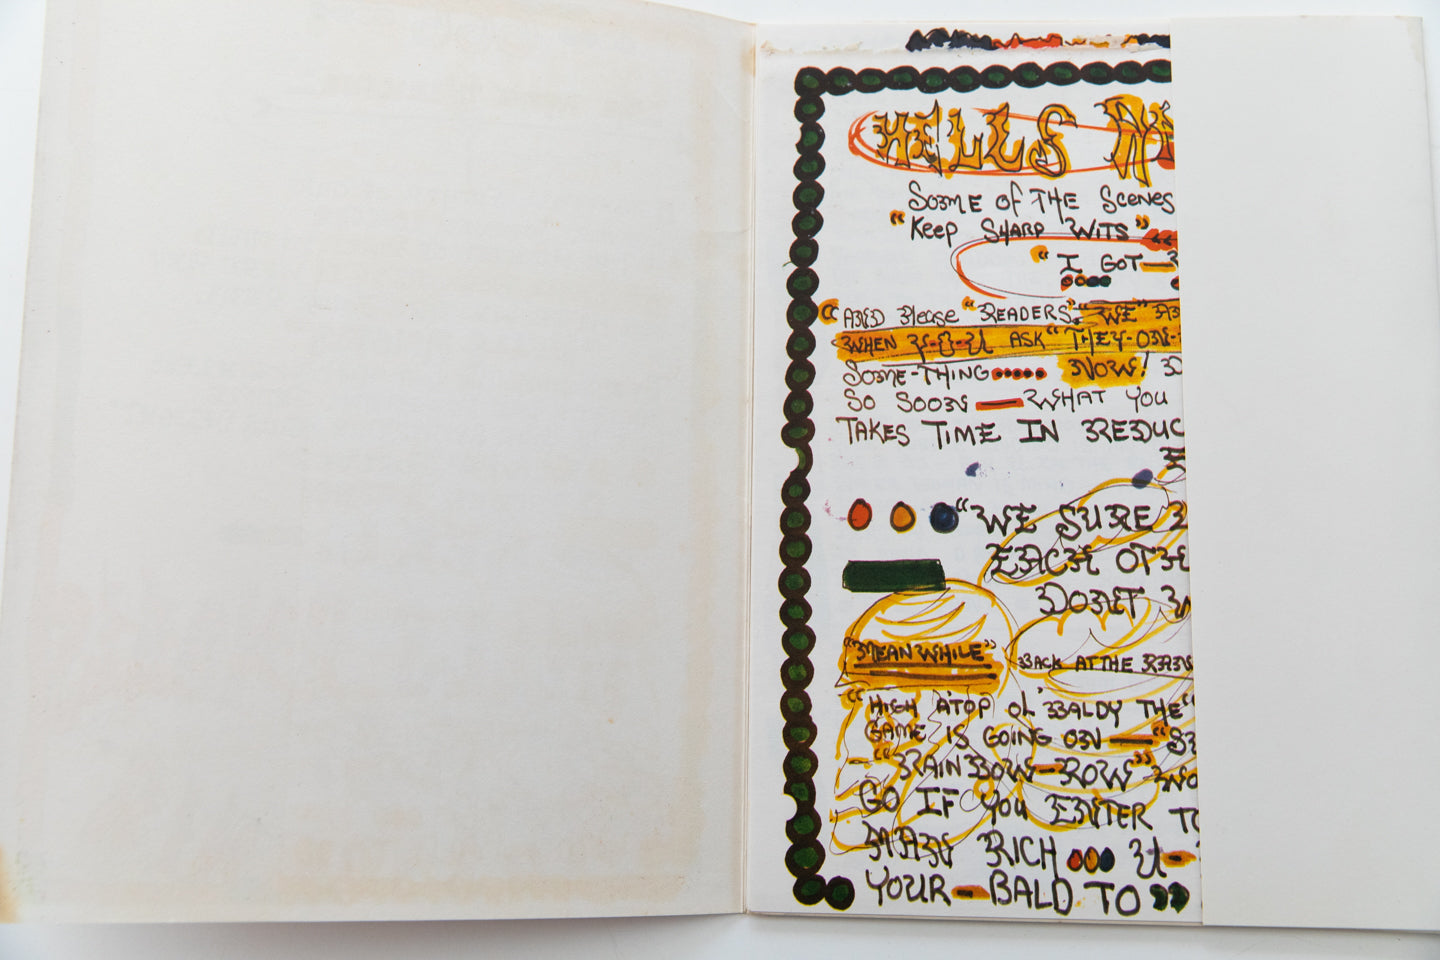 HELLS
SOME OF THE SCENES
"KEEP SHARP WITS"
"I GOT—
"AND Please "READERS". "WE"
WHEN Y-O-U ASK "THEY-ON-
SOME-THING••••• NOW!
SO SOON — WHAT YOU
TAKES TIME IN REDUC
"WE SURE
EACH OTHE
DONET
"MEANWHILE" BACK AT THE RAN
"HIGH A'TOP OL' BALDY THE "
GAME IS GOING ON — "
"RAINBOW-ROW" NO
GO IF YOU ENTER TO
MAN RICH ••• U-
YOUR - BALD TO